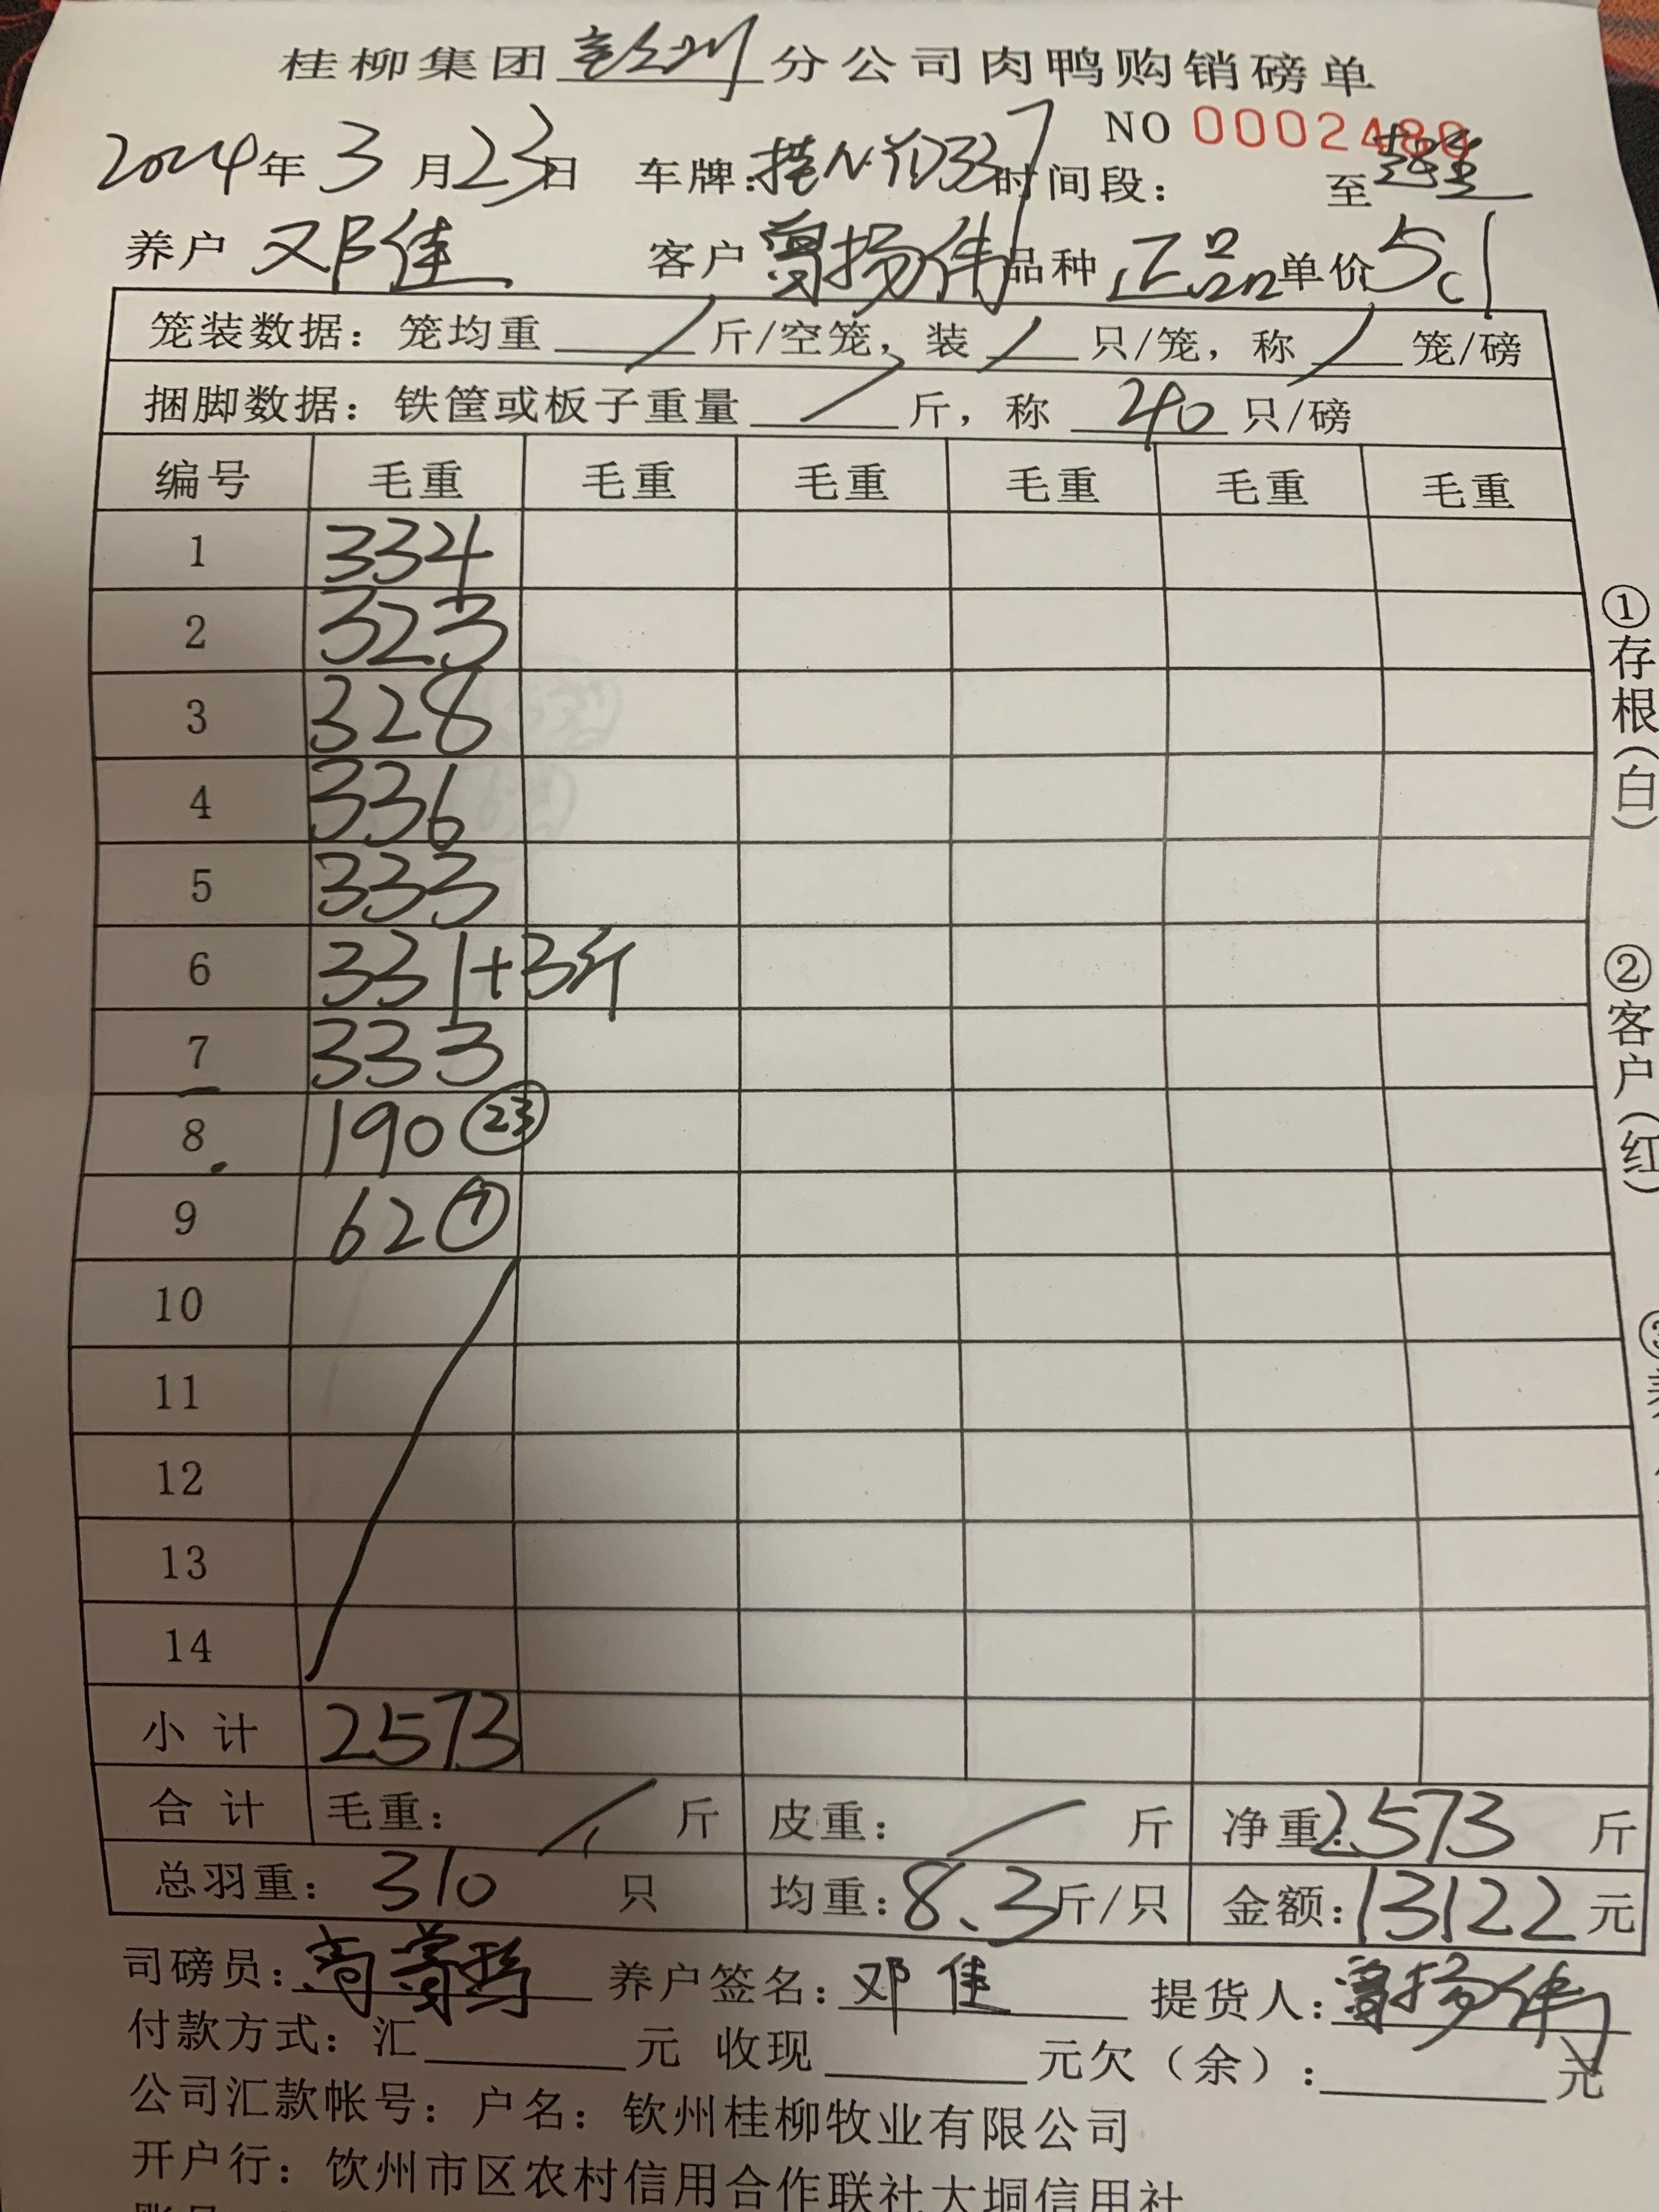 桂柳集团 分公司肉鸭购销磅单
NO 0002480
2024年 3 月 23日 车牌: 时间段: 至
养户 邓佳 客户 曾扬伟 品种 正品 单价 5c1
笼装数据：笼均重 / 斤/空笼，装 / 只/笼，称 / 笼/磅
捆脚数据：铁筐或板子重量 / 斤，称 40 只/磅
编号 毛重 毛重 毛重 毛重 毛重 毛重
1 334
2 323
3 328
4 336
5 333
6 331+3斤
7 333
8 190 23
9 62 7
10
11
12
13
14
小 计 2573
合 计 毛重: / 斤 皮重: / 斤 净重: 2573 斤
总羽重: 310 只 均重: 8.3 斤/只 金额: 13122 元
司磅员: 养户签名: 邓佳 提货人: 曾扬伟
付款方式: 汇 元 收现 元欠（余）: 元
公司汇款帐号: 户名: 钦州桂柳牧业有限公司
开户行: 钦州市区农村信用合作联社大垌信用社
①存根(白)
②客户(红)